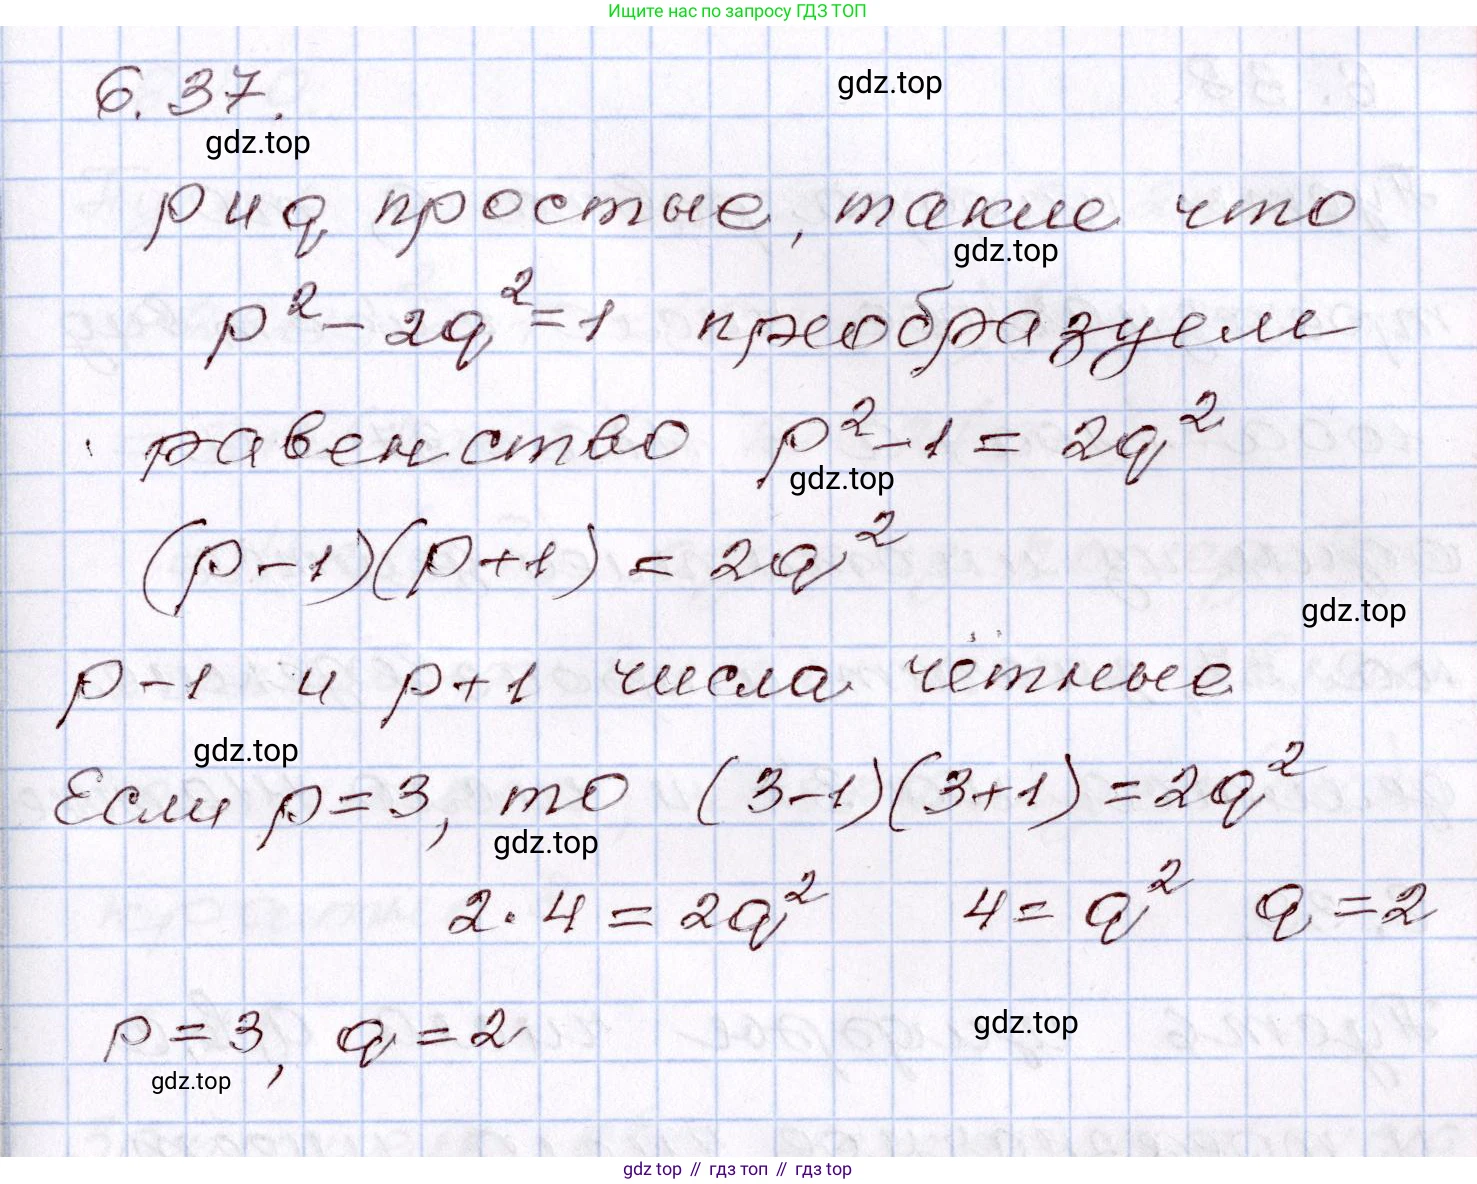 Ищите нас по запросу ГДЗ ТОП
6.37.
gdz.top
gdz.top
p и q простые, такие что
gdz.top
p² - 2q² = 1 преобразуем
равенство p² - 1 = 2q²
gdz.top
(p-1)(p+1) = 2q²
gdz.top
p-1 и p+1 числа чётные
gdz.top
Если p=3, то (3-1)(3+1) = 2q²
gdz.top
2·4 = 2q² 4 = q² q = 2
p = 3, q = 2
gdz.top
gdz.top
gdz top // гдз топ // гдз top